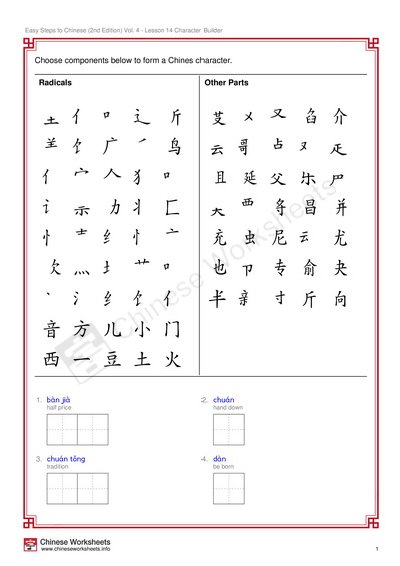 Easy Steps to Chinese (2nd Edition) Vol. 4 - Lesson 14 Character Builder
Choose components below to form a Chines character.
Radicals
Other Parts
土 亻 口 辶 斤
艾 又 臽 介
饣 广 鸟
云 哥 占 疋
亻 宀 人 犭 口
且 延 父 乐
讠 示 力 丬 匚
覀 昌 并
忄 纟 忄 亠
充 虫 尼 云 尤
欠 灬 土 艹 口
也 卩 专 俞 夬
丶 氵 纟 饣 亻
半 亲 寸 斤 向
音 方 儿 小 门
西 一 豆 土 火
Chinese Worksheets
1. bàn jià
half price
2. chuán
hand down
3. chuán tǒng
tradition
4. dàn
be born
Chinese Worksheets
www.chineseworksheets.info
1